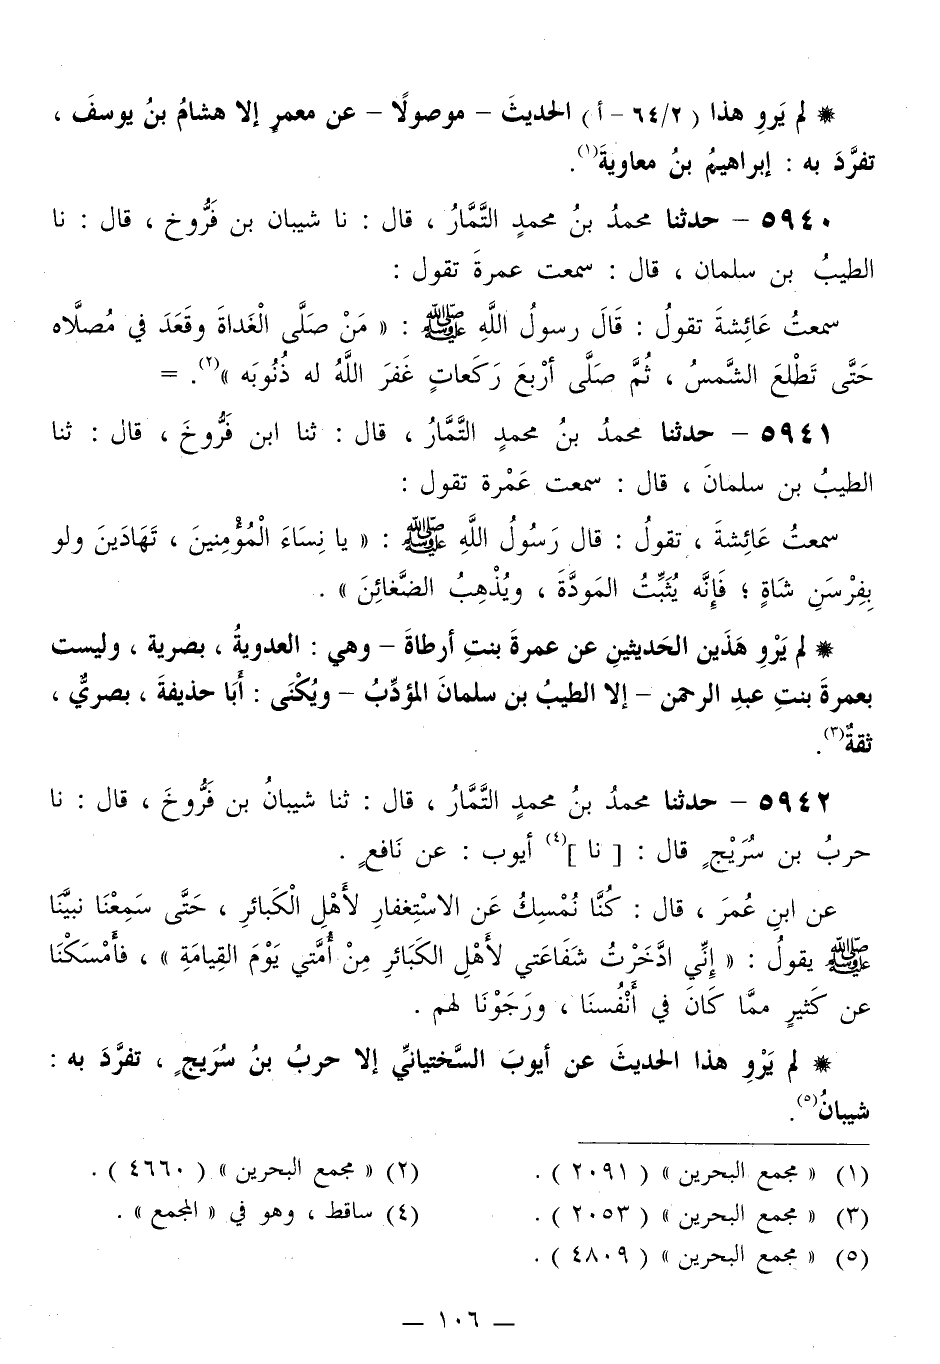 * لم يَروِ هذا ( ٦٤/٢ – أ ) الحديثَ – موصولًا – عن معمرٍ إلا هشامُ بنُ يوسفَ ،
تفرَّدَ به : إبراهيمُ بنُ معاويةَ(١).
٥٩٤٠ – حدثنا محمدُ بنُ محمدٍ التَّمَّارُ ، قال : نا شيبان بن فَرُّوخ ، قال : نا
الطيبُ بن سلمان ، قال : سمعت عمرةَ تقول :
سمعتُ عَائِشةَ تقولُ : قَالَ رسولُ اللَّهِ ﷺ : « مَنْ صَلَّى الْغَداةَ وقَعَدَ في مُصلَّاه
حَتَّى تَطْلعَ الشَّمسُ ، ثُمَّ صَلَّى أرْبعَ رَكَعاتٍ غَفرَ اللَّهُ له ذُنُوبَه »(٢). =
٥٩٤١ – حدثنا محمدُ بنُ محمدٍ التَّمَّارُ ، قال : ثنا ابن فَرُّوخَ ، قال : ثنا
الطيبُ بن سلمانَ ، قال : سمعت عَمْرة تقول :
سمعتُ عَائِشةَ ، تقولُ : قال رَسُولُ اللَّهِ ﷺ : « يا نِساءَ الْمُؤْمنينَ ، تَهَادَينَ ولو
بِفِرْسَنِ شَاةٍ ؛ فَإِنَّه يُثَبِّتُ المَودَّةَ ، ويُذْهِبُ الضَّغائِنَ » .
* لم يَرْوِ هَذَين الحَديثينِ عن عمرةَ بنتِ أرطاةَ – وهي : العدويةُ ، بصرية ، وليست
بعمرةَ بنتِ عبدِ الرحمن – إلا الطيبُ بن سلمانَ المؤدِّبُ – ويُكْنَى : أَبَا حذيفةَ ، بصريٌّ ،
ثقةٌ(٣).
٥٩٤٢ – حدثنا محمدُ بنُ محمدٍ التَّمَّارُ ، قال : ثنا شيبانُ بن فَرُّوخَ ، قال : نا
حربُ بن سُرَيْجٍ قال : [ نا ](٤) أيوب : عن نَافعٍ .
عن ابنِ عُمرَ ، قال : كُنَّا نُمْسِكُ عَن الاسْتِغفارِ لأَهْلِ الْكَبائرِ ، حَتَّى سَمِعْنَا نبيَّنَا
ﷺ يقولُ : « إِنِّي ادَّخَرْتُ شَفَاعَتي لأَهْلِ الكَبَائرِ مِنْ أُمَّتي يَوْمَ القِيامَةِ » ، فأَمْسَكْنَا
عن كَثيرٍ ممَّا كَانَ في أَنْفُسنَا ، ورَجَوْنَا لهم .
* لم يَرْوِ هذا الحديثَ عن أيوبَ السَّختيانيِّ إلا حربُ بنُ سُرَيجٍ ، تفرَّدَ به :
شيبانُ(٥).
(١) « مجمع البحرين » ( ٢٠٩١ ) .
(٢) « مجمع البحرين » ( ٤٦٦٠ ) .
(٣) « مجمع البحرين » ( ٢٠٥٣ ) .
(٤) ساقط ، وهو في « المجمع » .
(٥) « مجمع البحرين » ( ٤٨٠٩ ) .
— ١٠٦ —